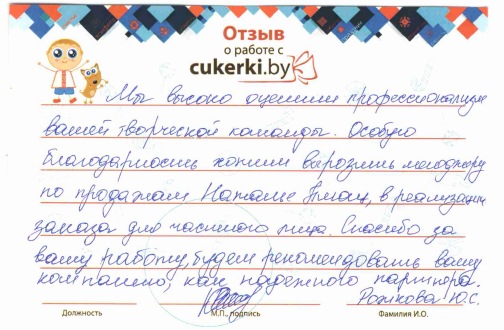 Отзыв
о работе с
cukerki.by
Мы высоко оценили профессионализм
вашей творческой команды. Особую
благодарность хотим выразить менеджеру
по продажам Наталье, в реализации
заказа для частного лица. Спасибо за
вашу работу, будем рекомендовать вашу
компанию, как надежного партнера.
Рожкова Ю.С.
Должность М.П., подпись Фамилия И.О.